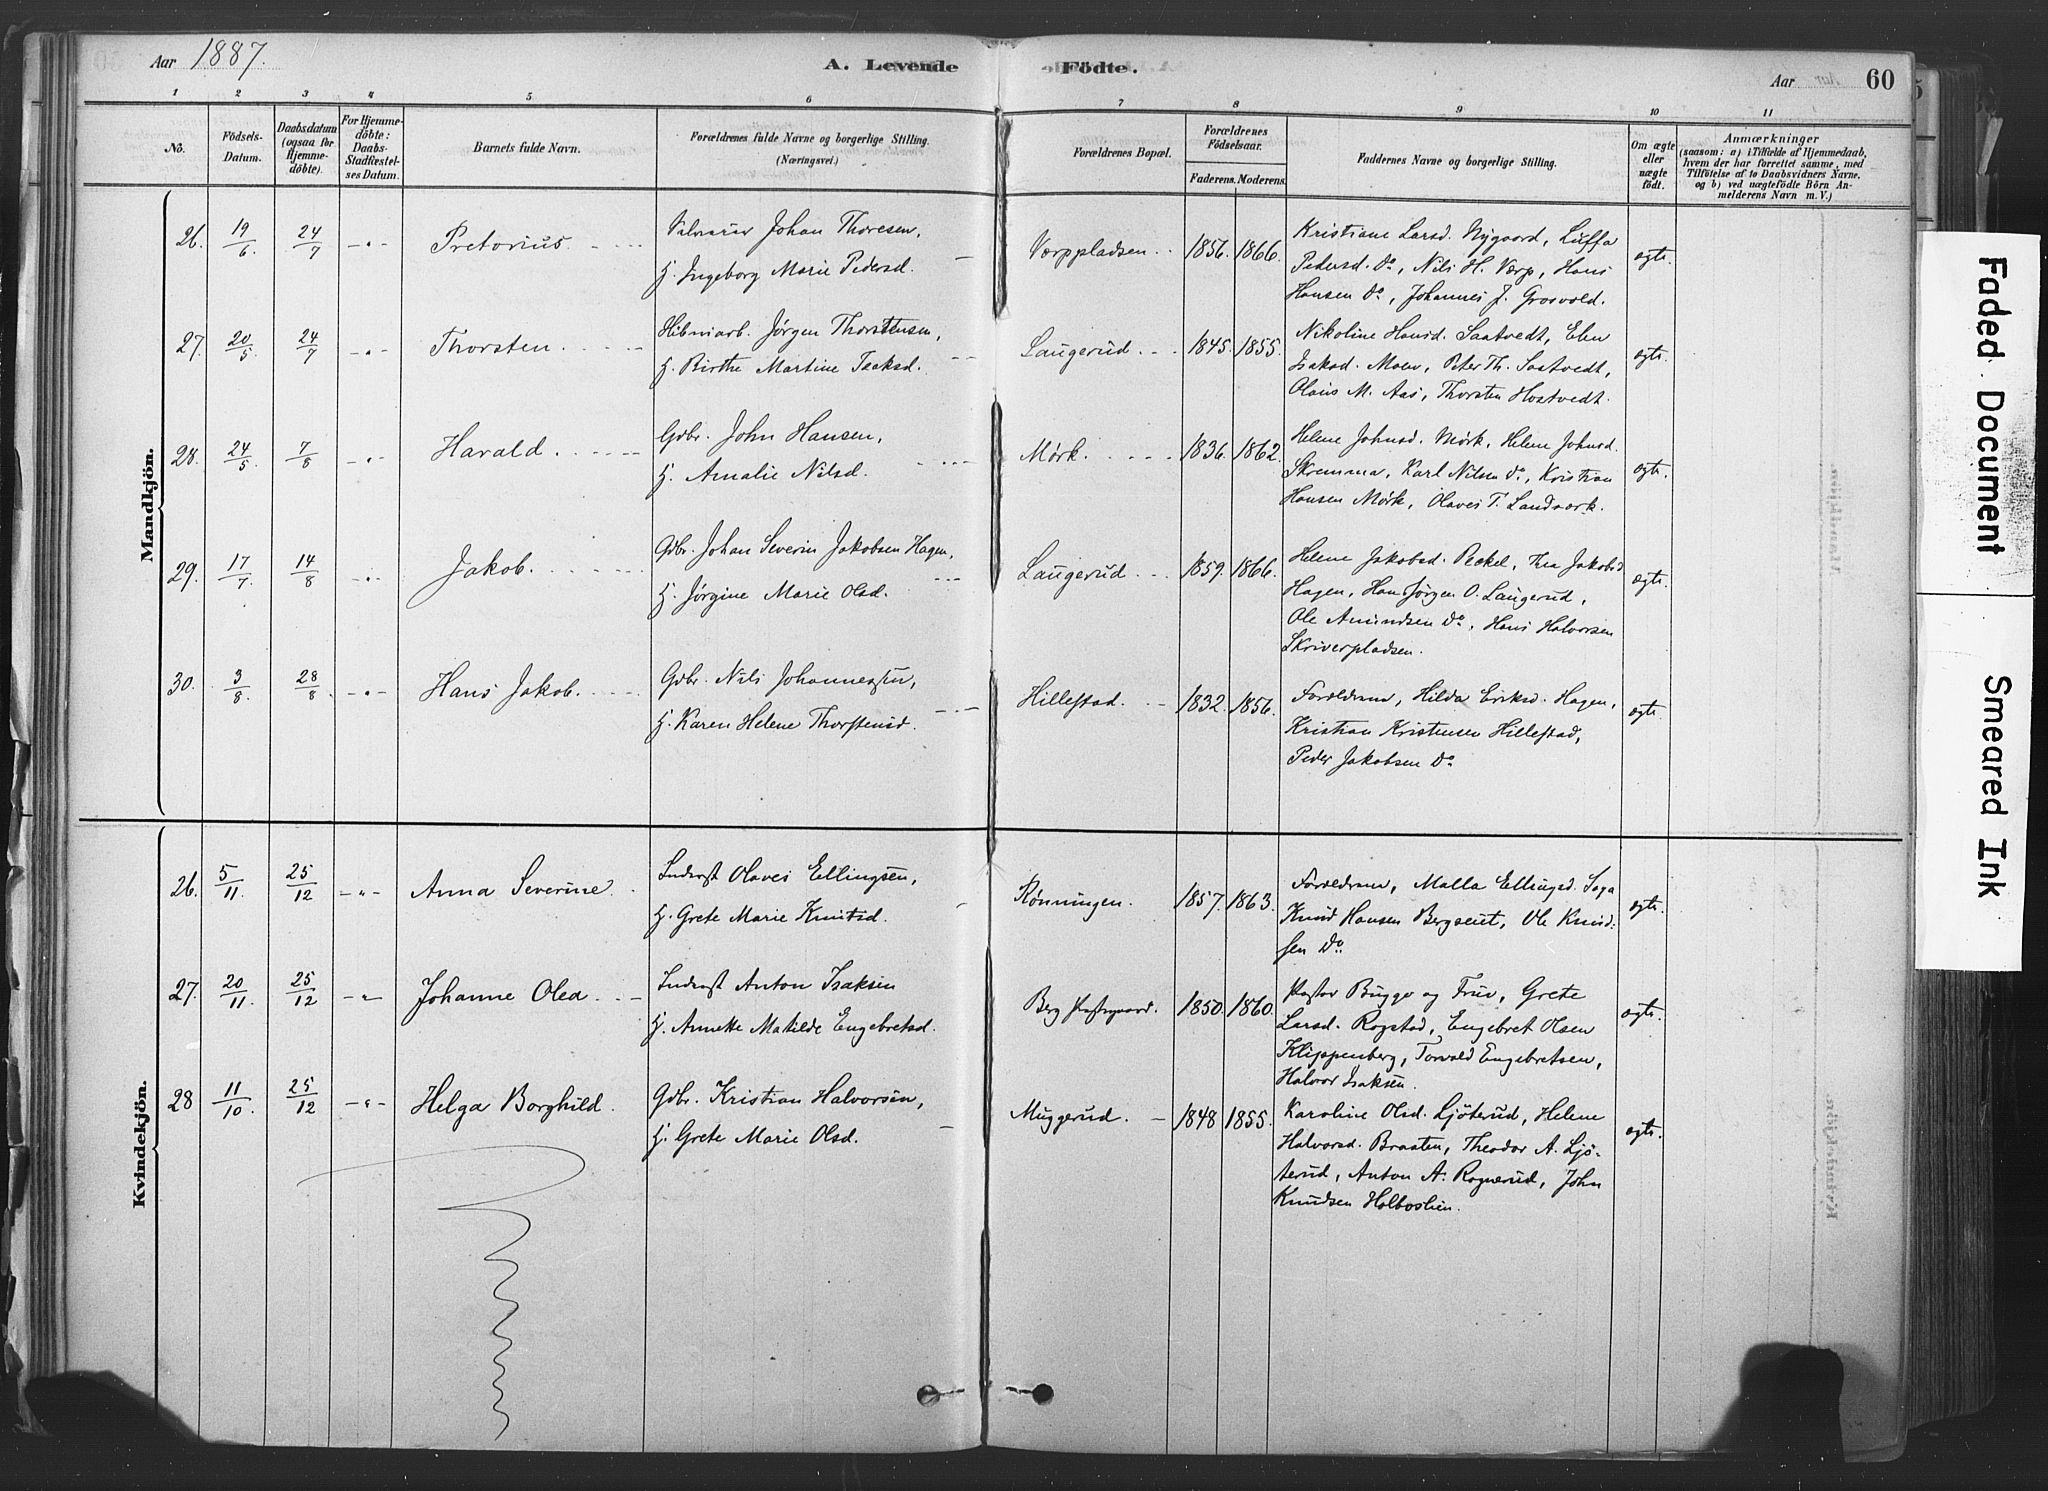 Aar 1887.
A. Levende Födte.
Aar 60
1 2 3 4 5 6 7 8 9 10 11
No.
Födsels-
Datum.
Daabsdatum
(ogsaa for
Hjemme-
döbte).
For Hjemme-
döbte:
Daabs-
Stadfæstel-
ses Datum.
Barnets fulde Navn.
Forældrenes fulde Navne og borgerlige Stilling.
(Næringsvei.)
Forældrenes Bopæl.
Forældrenes
Födselsaar.
Faderens. Moderens.
Faddernes Navne og borgerlige Stilling.
Om ægte
eller
uægte
födt.
Anmærkninger
(saasom: a) i Tilfælde af Hjemmedaab,
hvem der har forrettet samme, med
Tilföielse af to Daabsvidners Navne,
og b) ved uægtefödte Börn An-
melderens Navn m. V.)
Mandkjön.
26. 19/6 24/7 -„- Pretorius
Johan Thoresen,
H. Ingeborg Marie Pedersd.
Værppladsen 1856. 1866.
Kristiane Larsd. Nygaard, Luffa
Pedersd. Do, Nils H. Værp, Hans
Hansen Do, Johannes J. Grosvold.
ægte.
27. 20/5 24/7 -„- Thorsten
Jørgen Thorstensen,
H. Birthe Martine Isaksd.
Laugerud 1845. 1855.
Nikoline Hansd. Saatvedt, Elen
Isaksd. Moen, Peter Th. Saatvedt,
Olaus M. Aas, Thorsten Hostvedt.
ægte.
28. 24/5 7/8 -„- Harald
Gdbr. John Hansen,
H. Amalie Nilsd.
Mørk. 1836. 1862.
Helene Johnsd. Mørk, Helene Johnsd.
Skremma, Karl Nilsen Do, Kristian
Hansen Mørk, Olaves T. Landverk.
ægte.
29. 17/7 14/8 -„- Jakob.
Gdbr. Johan Severin Jakobsen Hagen,
H. Jørgine Marie Olsd.
Laugerud 1859. 1866.
Helene Jakobsd. Peckel, Thea Jakobsd
Hagen, Hans Jørgen O. Laugerud,
Ole Amundsen Do, Hans Halvorsen
Skriverpladsen.
ægte.
30. 3/8 28/8 -„- Hans Jakob.
Gdbr. Nils Johannessen,
H. Karen Helene Thorstensd.
Hillestad. 1832. 1856.
Forældrene, Hilda Eriksd. Hagen,
Kristian Kristensen Hillestad,
Peder Jakobsen Do
ægte.
Kvindekjön.
26. 5/11 25/12 -„- Anna Severine
Inderst Olaves Ellingsen,
H. Grete Marie Knutsd.
Rønningen. 1857. 1863.
Forældrene, Malla Ellingsd. Saga
Knud Hansen Bergseut, Ole Knud-
sen Do
ægte.
27. 20/11 25/12 -„- Johanne Olea
Inderst Anton Isaksen
H. Annette Matilde Engebretsd.
Berg Præstegaard. 1850. 1860.
Pastor Bugge og Frue, Grete
Larsd. Rogstad, Engebret Olsen
Klippenberg, Torvald Engebretsen,
Halvor Isaksen.
ægte.
28 11/10 25/12 -„- Helga Borghild.
Gdbr. Kristian Halvorsen,
H. Grete Marie Olsd.
Muggerud. 1848 1855.
Karoline Olsd. Ljøterud, Helene
Halvorsd. Braaten, Theodor A. Ljø-
terud, Anton A. Rognerud, John
Knudsen Holboslien.
ægte.
Faded Document
Smeared Ink